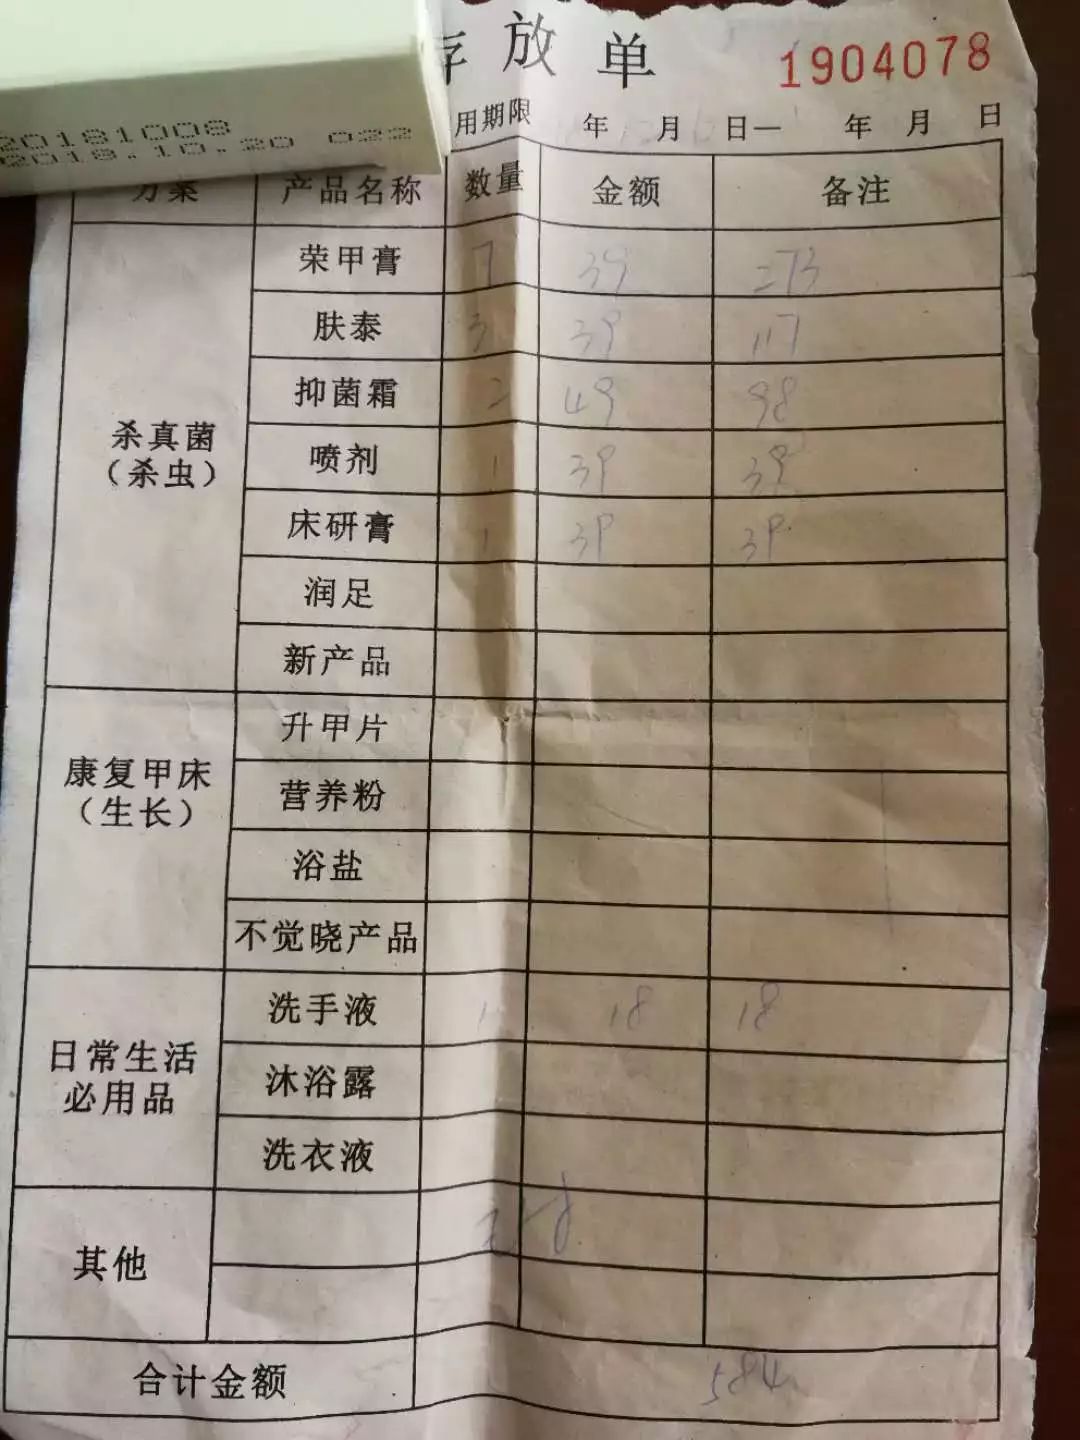 存放单 1904078
20181008
2018.10.20 022
用期限 年 月 日— 年 月 日
方案 产品名称 数量 金额 备注
杀真菌
（杀虫）
荣甲膏 7 39 273
肤泰 3 39 117
抑菌霜 2 49 98
喷剂 1 39 39
床研膏 1 39 39
润足
新产品
康复甲床
（生长）
升甲片
营养粉
浴盐
不觉晓产品
日常生活
必用品
洗手液 1 18 18
沐浴露
洗衣液
其他
合计金额 584